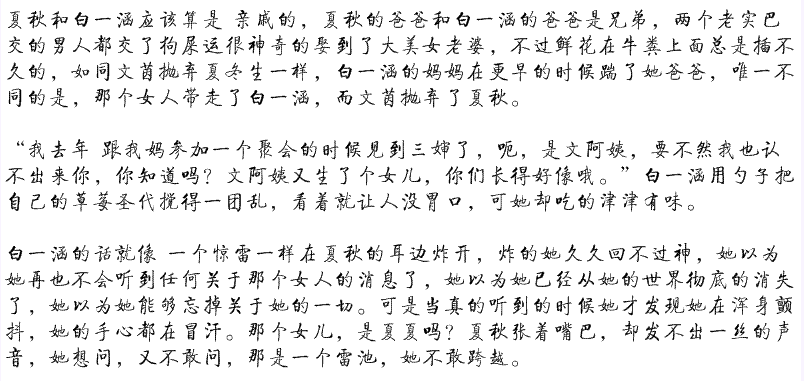 夏秋和白一涵应该算是 亲戚的，夏秋的爸爸和白一涵的爸爸是兄弟，两个老实巴
交的男人都交了狗屎运很神奇的娶到了大美女老婆，不过鲜花在牛粪上面总是插不
久的，如同文茵抛弃夏冬生一样，白一涵的妈妈在更早的时候踹了她爸爸，唯一不
同的是，那个女人带走了白一涵，而文茵抛弃了夏秋。
“我去年 跟我妈参加一个聚会的时候见到三婶了，呃，是文阿姨，要不然我也认
不出来你，你知道吗？文阿姨又生了个女儿，你们长得好像哦。”白一涵用勺子把
自己的草莓圣代搅得一团乱，看着就让人没胃口，可她却吃的津津有味。
白一涵的话就像 一个惊雷一样在夏秋的耳边炸开，炸的她久久回不过神，她以为
她再也不会听到任何关于那个女人的消息了，她以为她已经从她的世界彻底的消失
了，她以为她能够忘掉关于她的一切。可是当真的听到的时候她才发现她在浑身颤
抖，她的手心都在冒汗。那个女儿，是夏夏吗？夏秋张着嘴巴，却发不出一丝的声
音，她想问，又不敢问，那是一个雷池，她不敢跨越。